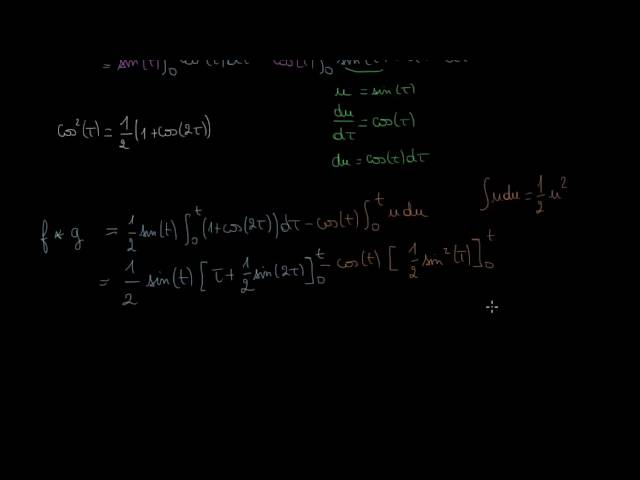 = sin(t)∫₀ cos(τ) cos(t)∫₀ sin(τ)
u = sin(τ)
cos²(τ) = 1/2 (1+cos(2τ))
du/dτ = cos(τ)
du = cos(τ)dτ
∫udu = 1/2 u²
f * g = 1/2 sin(t) ∫₀ᵗ (1+cos(2τ))dτ - cos(t) ∫₀ᵗ u du
= 1/2 sin(t) [τ + 1/2 sin(2τ)]₀ᵗ - cos(t) [1/2 sin²(τ)]₀ᵗ